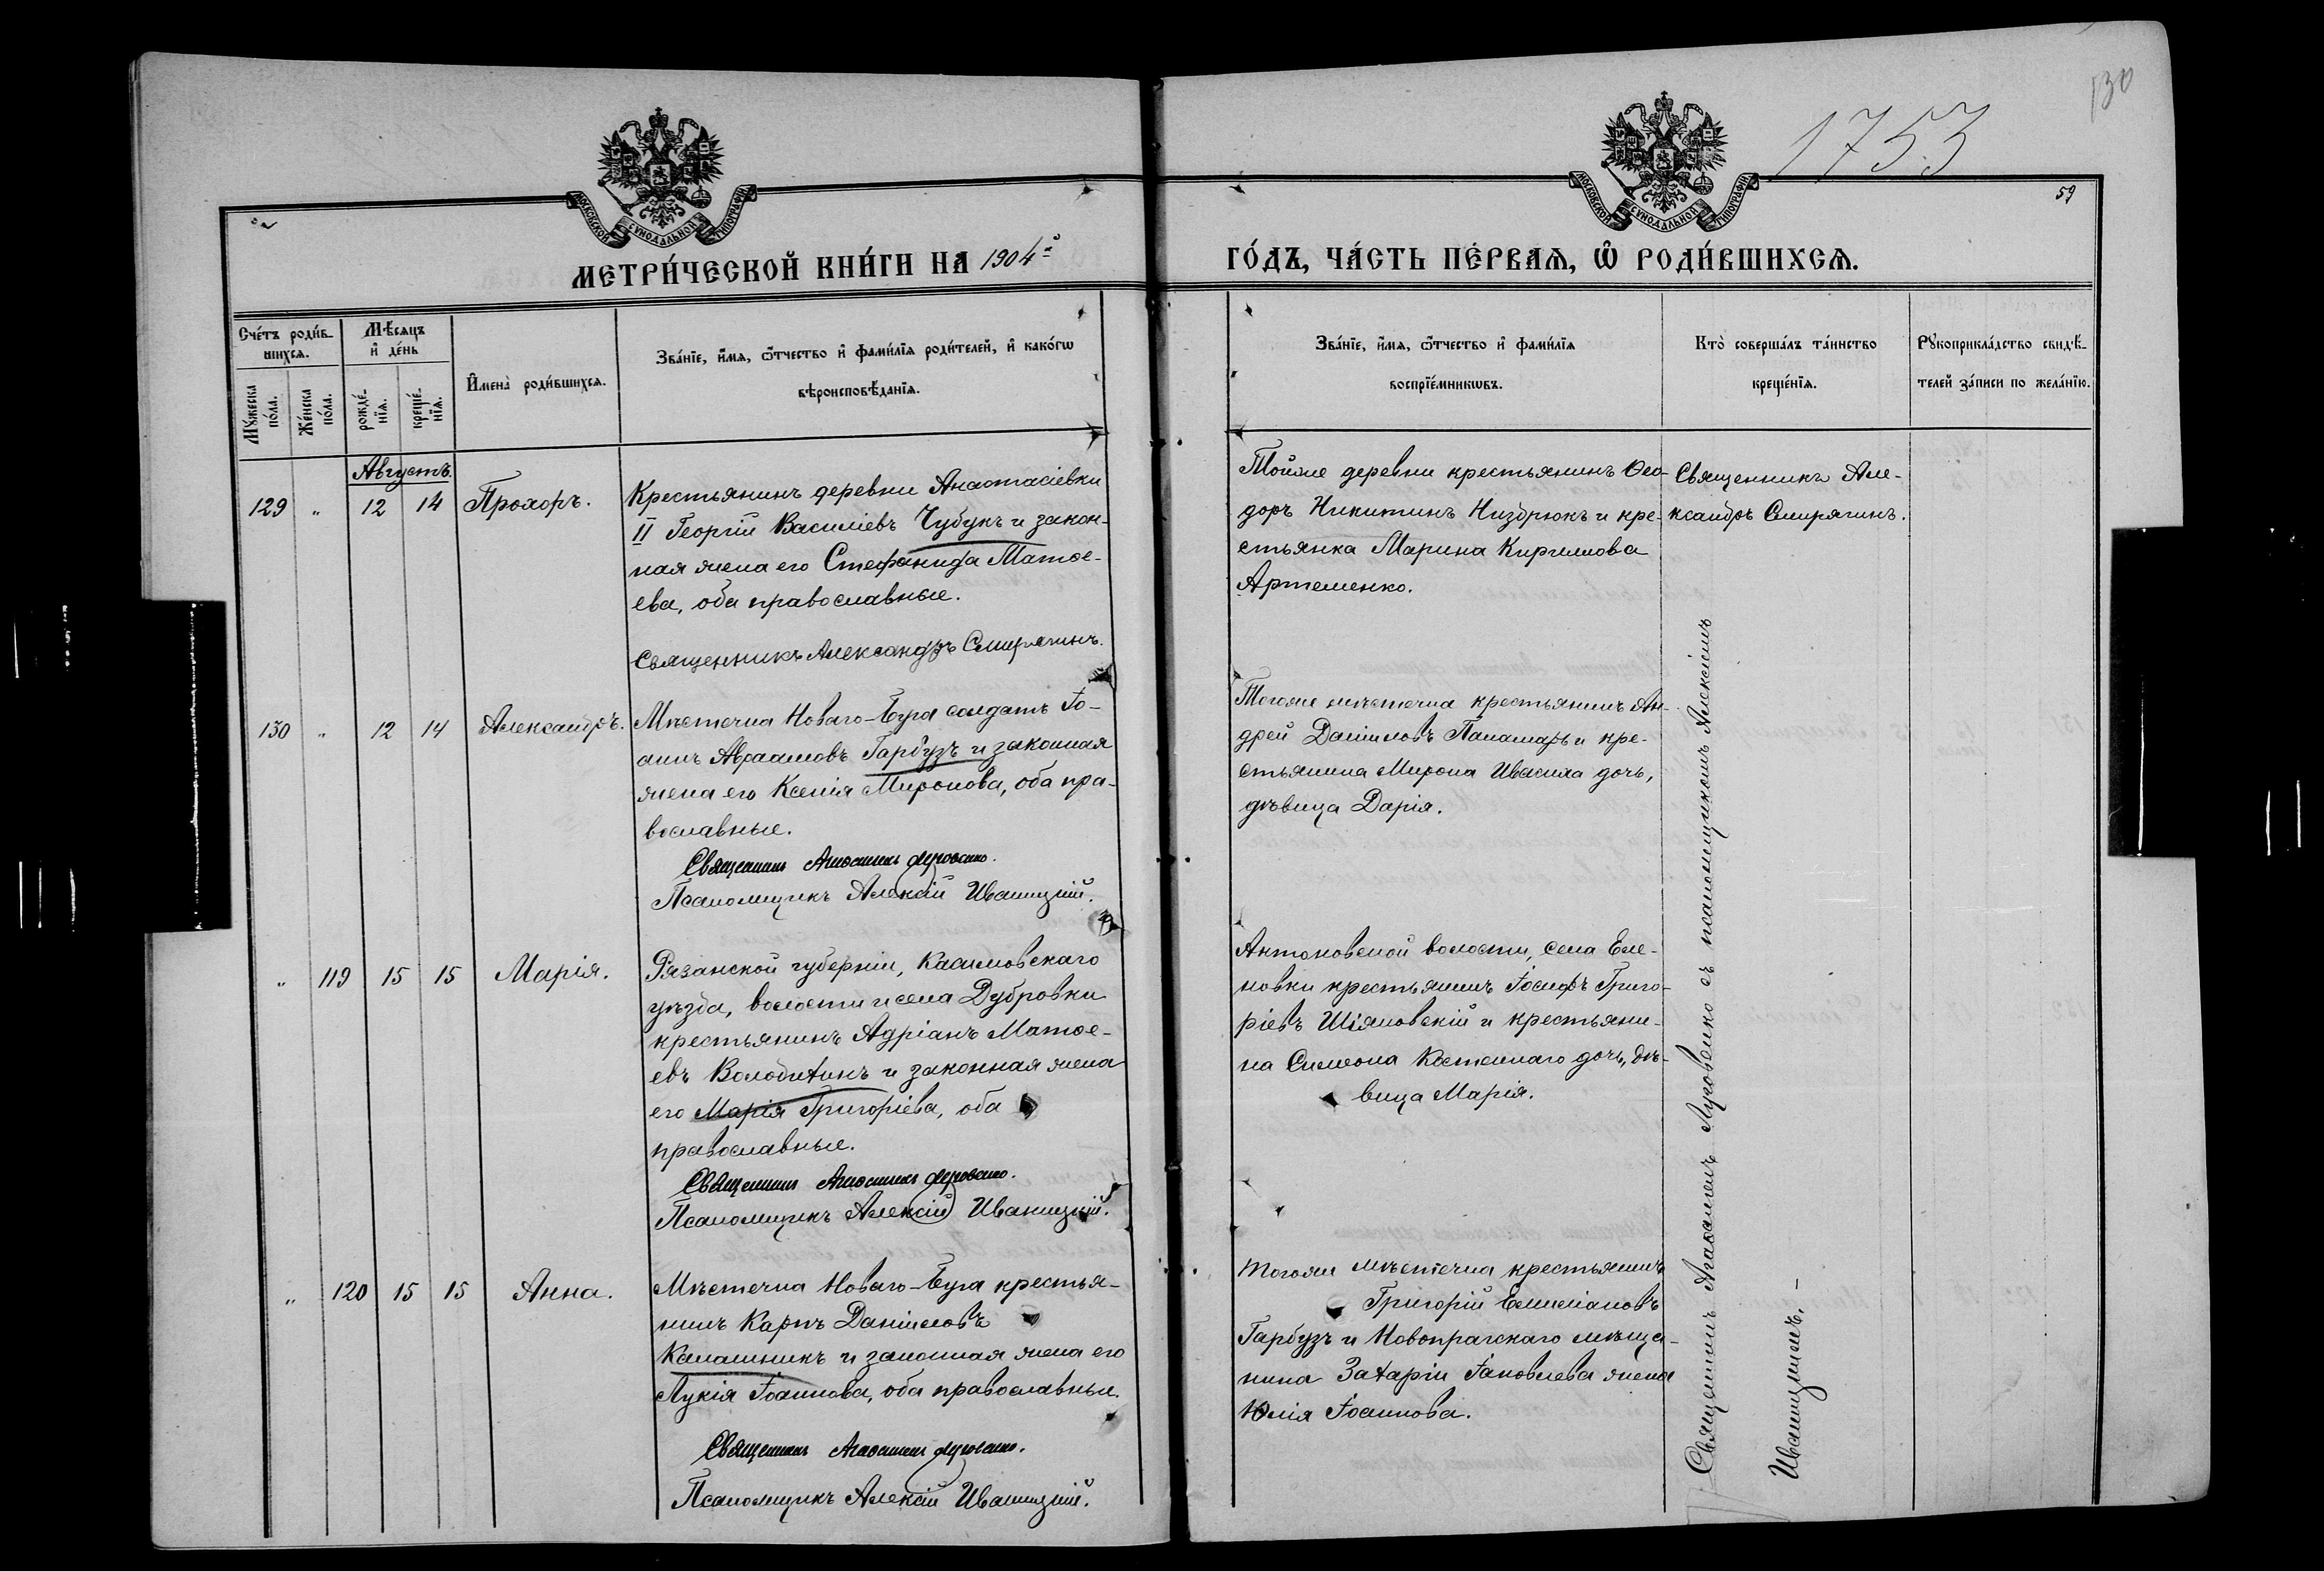 130
1753
59
МОСКОВСКОЙ СѴНОДАЛЬНОЙ ТИПОГРАФІИ
МОСКОВСКОЙ СѴНОДАЛЬНОЙ ТИПОГРАФІИ
МЕТРИ́ЧЕСКОЙ КНИ́ГИ НА 1904й
ГО́ДЪ, ЧА́СТЬ ПЕ́РВАѦ, Ѡ҆ РОДИ́ВШИХСѦ.
Сче́тъ роди́в-
шихсѧ.
Мѣ́сѧцъ
и҆ де́нь
Мꙋ́жеска
по́ла.
Же́нска
по́ла.
рожде́-
нїѧ.
креще́-
нїѧ.
И҆мена̀ роди́вшихсѧ.
Зва́нїе, и҆́мѧ, ѻ҆́тчество и҆ фами́лїѧ роди́телей, и҆ како́гѡ
вѣроисповѣ́данїѧ.
Зва́нїе, и҆́мѧ, ѻ҆́тчество и҆ фами́лїѧ
воспрїе́мникѡвъ.
Кто̀ соверша́лъ та́инство
креще́нїѧ.
Рꙋкоприкла́дство свидѣ́-
телей за́писи по жела́нїю.
Августъ.
129 „ 12 14 Прохоръ.
Крестьянинъ деревни Анастасіевки
II Георгій Василіевъ Чубукъ и закон-
ная жена его Стефанида Матѳе-
ева, оба православные.
Священникъ Александръ Смирягинъ.
Тойже деревни крестьянинъ Ѳео-
доръ Никитинъ Низдрюкъ и кре-
стьянка Марина Кириллова
Артеменко.
Священникъ Але-
ксандръ Смирягинъ.
130 „ 12 14 Александръ.
Мѣстечка Новаго-Буга солдатъ Іо-
аннъ Авраамовъ Гарбузъ и законная
жена его Ксенія Миронова, оба пра-
вославные.
Священникъ Агаѳангелъ Луговенко.
Псаломщикъ Алексій Иваницкій.
Тогоже мѣстечка крестьянинъ Ан-
дрей Даніиловъ Паламарь и кре-
стьянина Мирона Ивасика дочь,
дѣвица Дарія.
„ 119 15 15 Марія.
Рязанской губерніи, Касимовскаго
уѣзда, волости и села Дубровки
крестьянинъ Адріанъ Матѳе-
евъ Володихинъ и законная жена
его Марія Григоріева, оба
православные.
Священникъ Агаѳангелъ Луговенко.
Псаломщикъ Алексій Иваницкій.
Антоновской волости, села Еле-
новки крестьянинъ Іосифъ Григо-
ріевъ Шіяновскій и крестьяни-
на Симеона Костеннаго дочь, дѣ-
вица Марія.
„ 120 15 15 Анна.
Мѣстечка Новаго-Буга крестья-
нинъ Карпъ Даніиловъ
Калашникъ и законная жена его
Лукія Іоаннова, оба православные.
Священникъ Агаѳангелъ Луговенко.
Псаломщикъ Алексій Иваницкій.
Тогоже мѣстечка крестьянинъ
Григорій Емиліановъ
Гарбузъ и Новопрагскаго мѣща-
нина Захаріи Іаковлева жена
Юлія Іоаннова.
Священникъ Агаѳангелъ Луговенко съ псаломщикомъ Алексіемъ
Иваницкимъ. —